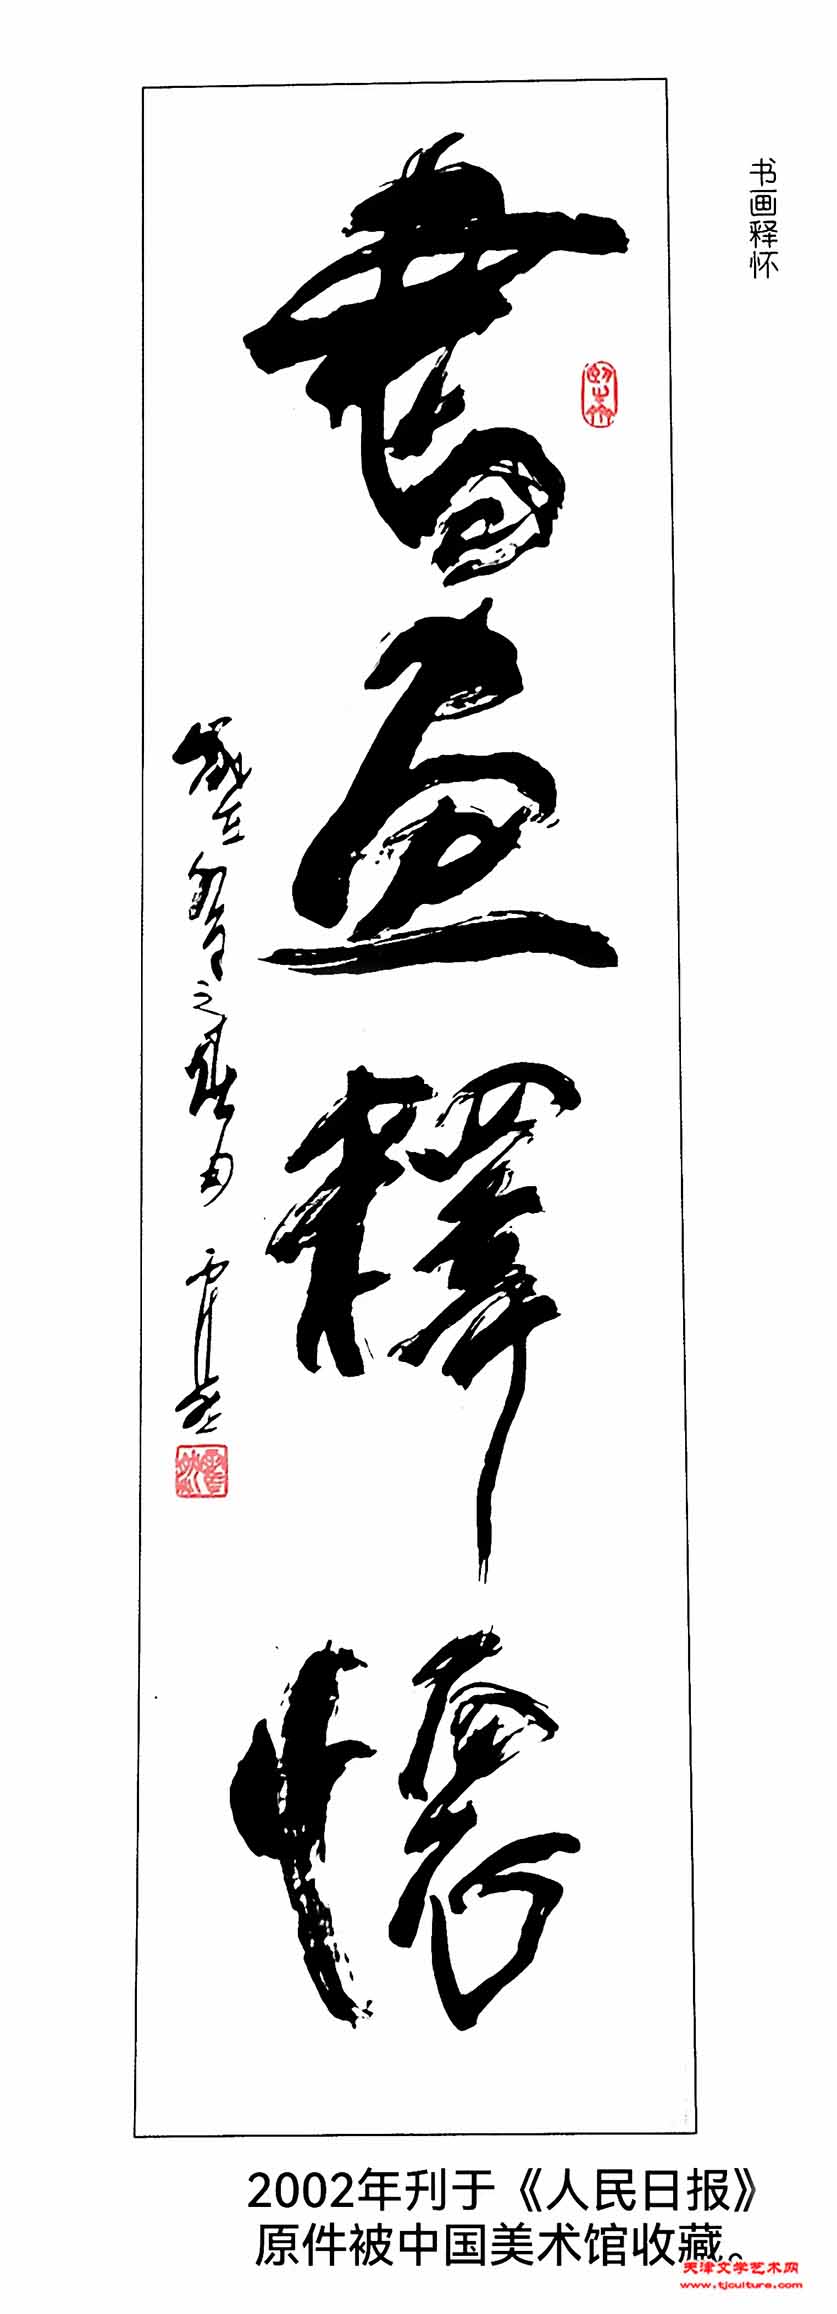 书画释怀
書画釋懷
2002年刊于《人民日报》
原件被中国美术馆收藏。
天津文学艺术网
www.tjculture.com